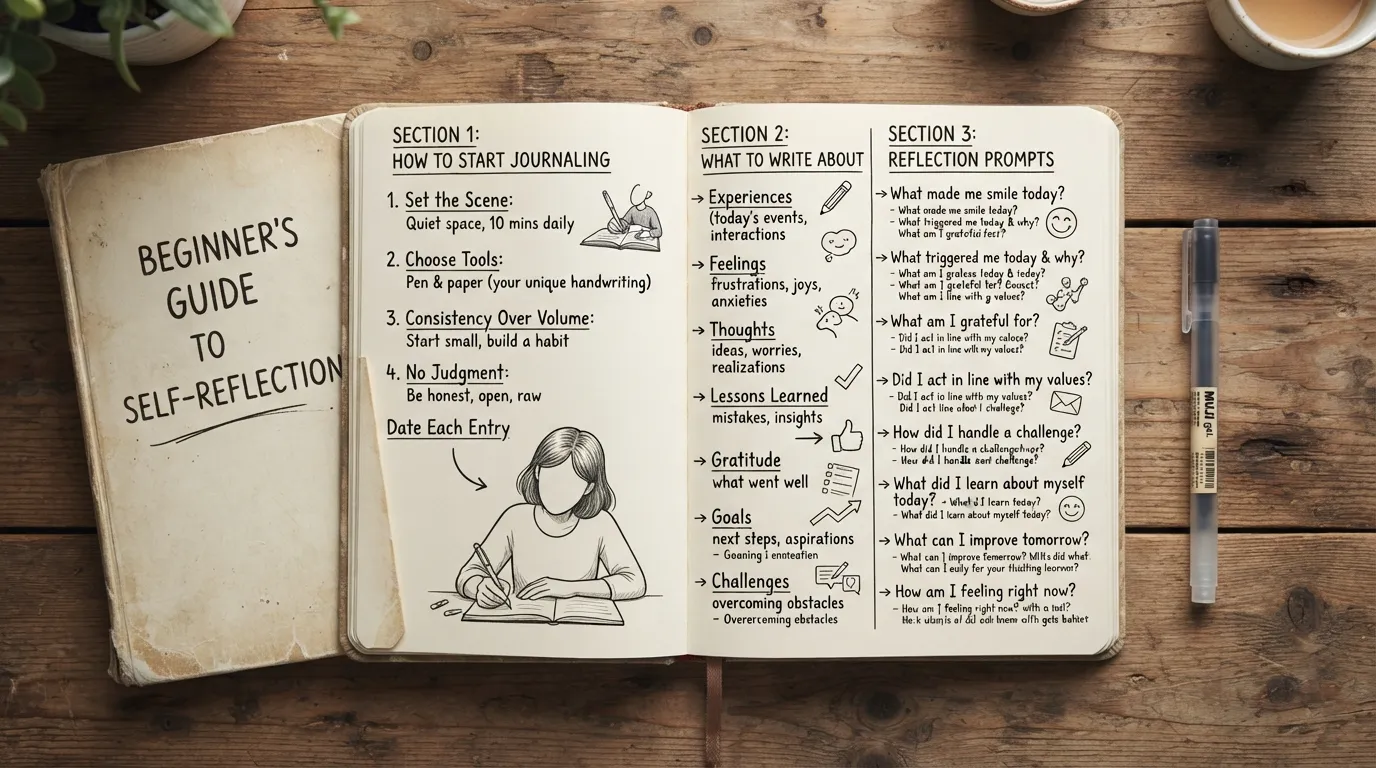 BEGINNER'S
GUIDE
TO
SELF-REFLECTION
SECTION 1:
HOW TO START JOURNALING
1. Set the Scene:
Quiet space, 10 mins daily
2. Choose Tools:
Pen & paper (your unique handwriting)
3. Consistency Over Volume:
Start small, build a habit
4. No Judgment:
Be honest, open, raw
Date Each Entry
SECTION 2:
WHAT TO WRITE ABOUT
→ Experiences
(today's events,
interactions
→ Feelings
frustrations, joys,
anxieties
→ Thoughts
ideas, worries,
realizations
→ Lessons Learned
mistakes, insights
→ Gratitude
what went well
→ Goals
next steps, aspirations
→ Challenges
overcoming obstacles
- Overcoming obstacles
SECTION 3:
REFLECTION PROMPTS
→ What made me smile today?
- What made me smile today?
- What triggered me today & why?
What am I grateful
→ What triggered me today & why?
- What am I
- What am I
What am I line with values?
→ What am I grateful for?
- Did I act in line with my
- Did I act in line with my values?
→ Did I act in line with my values?
- Did I act in line with my values?
Did I act line challenge?
→ How did I handle a challenge?
- How did I handle a
- How did I handle challenge?
→ What did I learn about myself
today? - What I learn today?
- What did I learn about myself today?
→ What can I improve tomorrow?
- What can I improve did what
What can I for your
→ How am I feeling right now?
- How am I feeling right now? with a
MUJI GEL